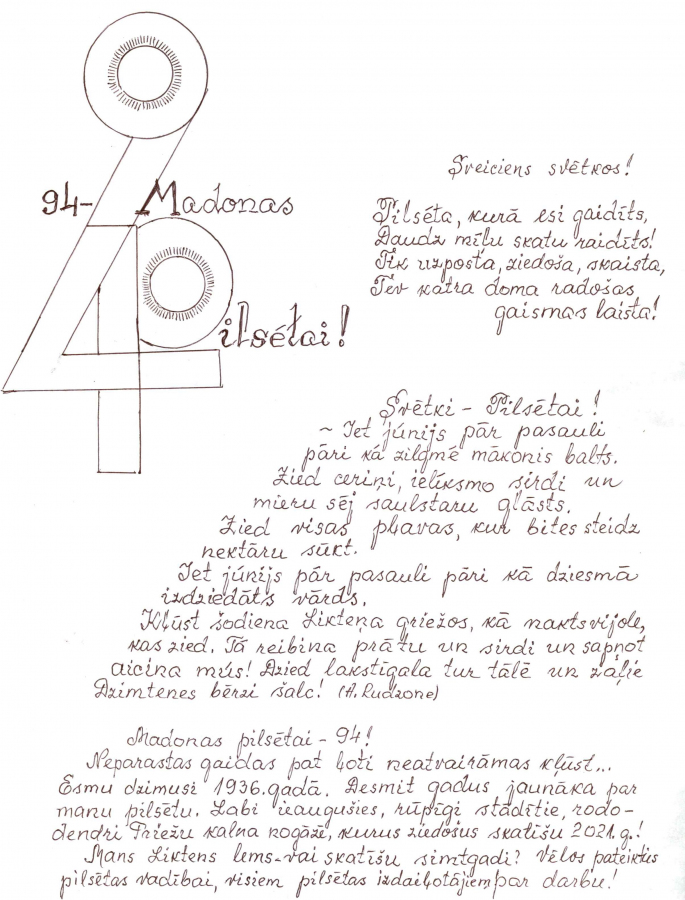 94- Madonas
Pilsētai!
Sveiciens svētkos!
Pilsēta, kurā esi gaidīts,
Daudz mīļu skatu raidīts!
Tik uzposta, ziedoša, skaista,
Tev katra doma radošas
gaismas laista!
Svētki - Pilsētai!
~ Iet jūnijs pār pasauli
pāri kā zilgmē mākonis balts.
Zied ceriņi, ielīksmo sirdi un
mieru sēj saulstaru glāsts.
Zied visas pļavas, kur bites steidz
nektāru sūkt.
Iet jūnijs pār pasauli pāri kā dziesmā
izdziedāts vārds.
Kļūst šodiena Likteņa griežos, kā naktsvijole,
kas zied. Tā reibina prātu un sirdi un sapņot
aicina mūs! Dzied lakstīgala tur tālē un zaļie
Dzimtenes bērzi šalc! (A. Rudzone)
Madonas pilsētai - 94!
Neparastas gaidas pat ļoti neatvairāmas kļūst...
Esmu dzimusi 1936. gadā. Desmit gadus jaunāka par
manu pilsētu. Labi ieaugušies, rūpīgi stādītie, rodo-
dendri Priežu kalna nogāzē, kurus ziedošus skatīšu 2021.g.!
Mans Liktens lems - vai skatīšu simtgadi? Vēlos pateikties
pilsētas vadībai, visiem pilsētas izdaiļotājiem par darbu!